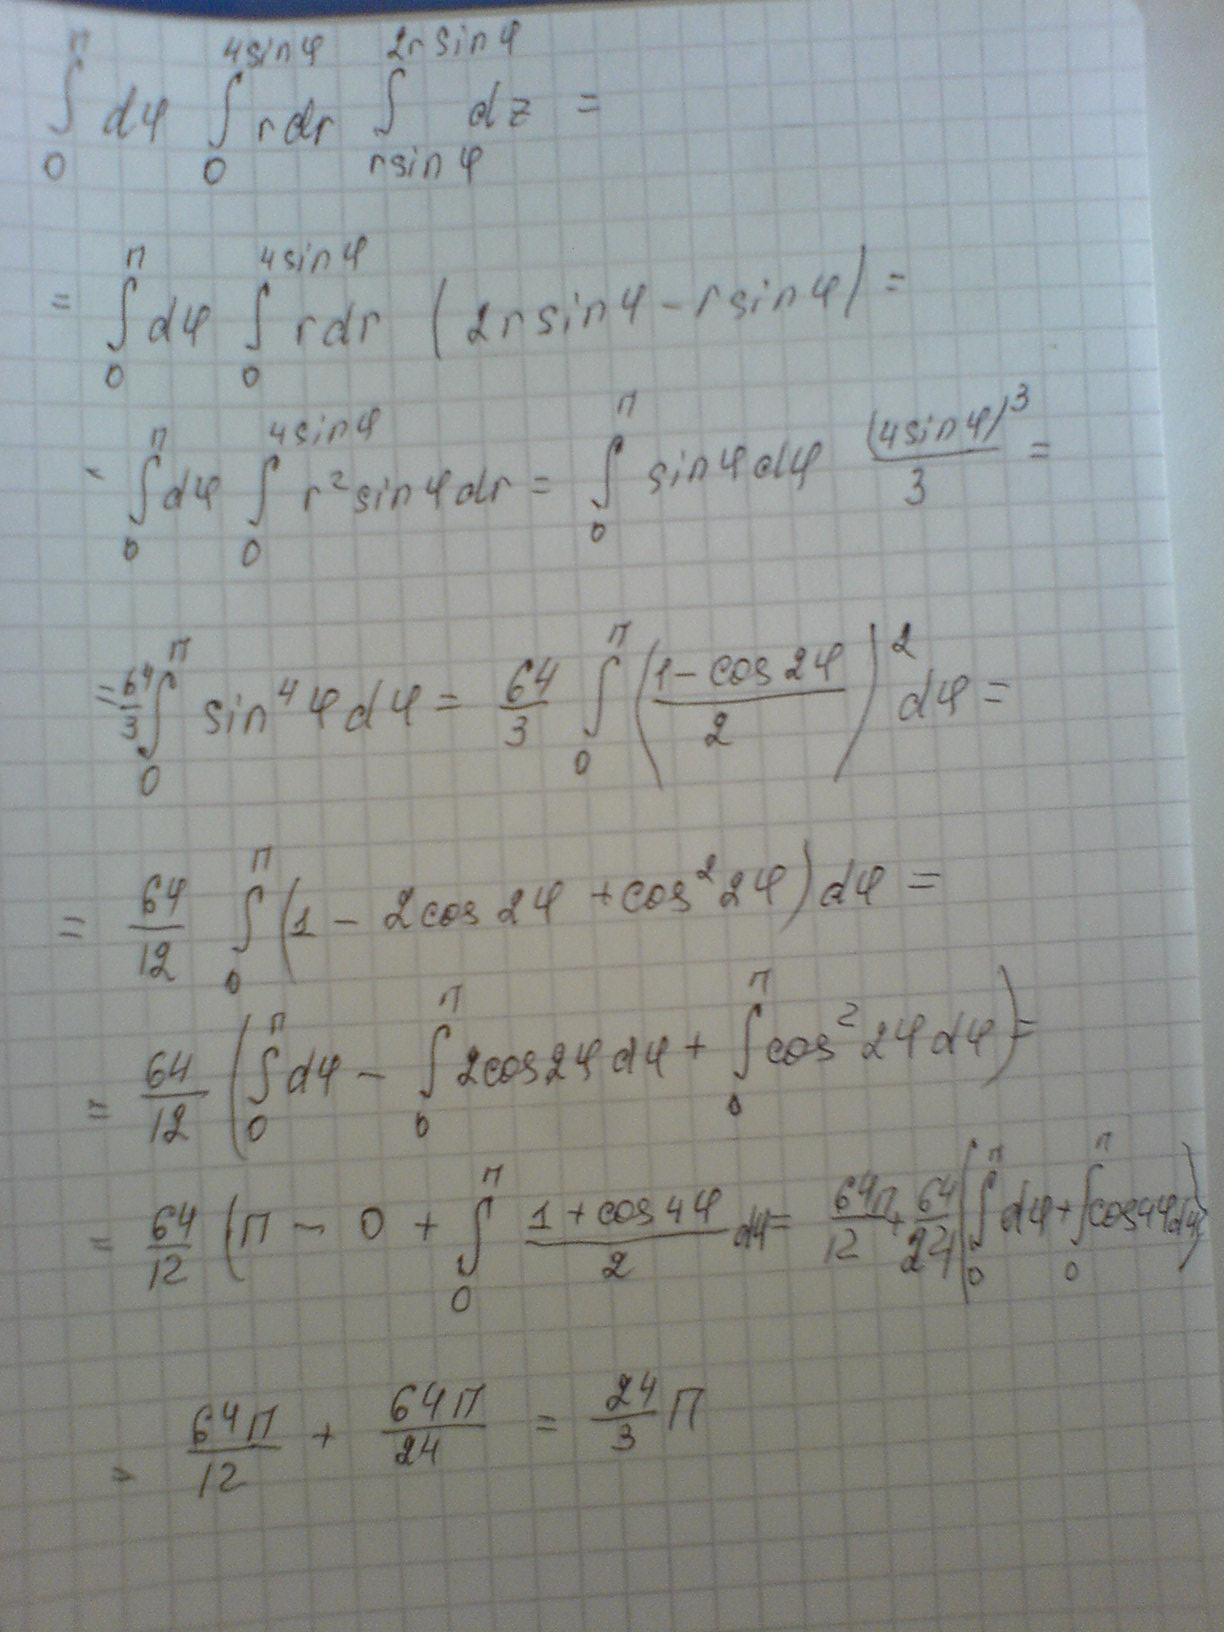 ∫₀^π dφ ∫₀^{4sinφ} rdr ∫_{rsinφ}^{2rsinφ} dz =
= ∫₀^π dφ ∫₀^{4sinφ} rdr (2rsinφ - rsinφ) =
= ∫₀^π dφ ∫₀^{4sinφ} r²sinφdr = ∫₀^π sinφdφ (4sinφ)³/3 =
= 64/3 ∫₀^π sin⁴φdφ = 64/3 ∫₀^π ((1-cos2φ)/2)² dφ =
= 64/12 ∫₀^π (1 - 2cos2φ + cos²2φ)dφ =
= 64/12 (∫₀^π dφ - ∫₀^π 2cos2φdφ + ∫₀^π cos²2φdφ) =
= 64/12 (π - 0 + ∫₀^π (1+cos4φ)/2 dφ = 64π/12 + 64/24 (∫₀^π dφ + ∫₀^π cos4φdφ)
= 64π/12 + 64π/24 = 24/3 π